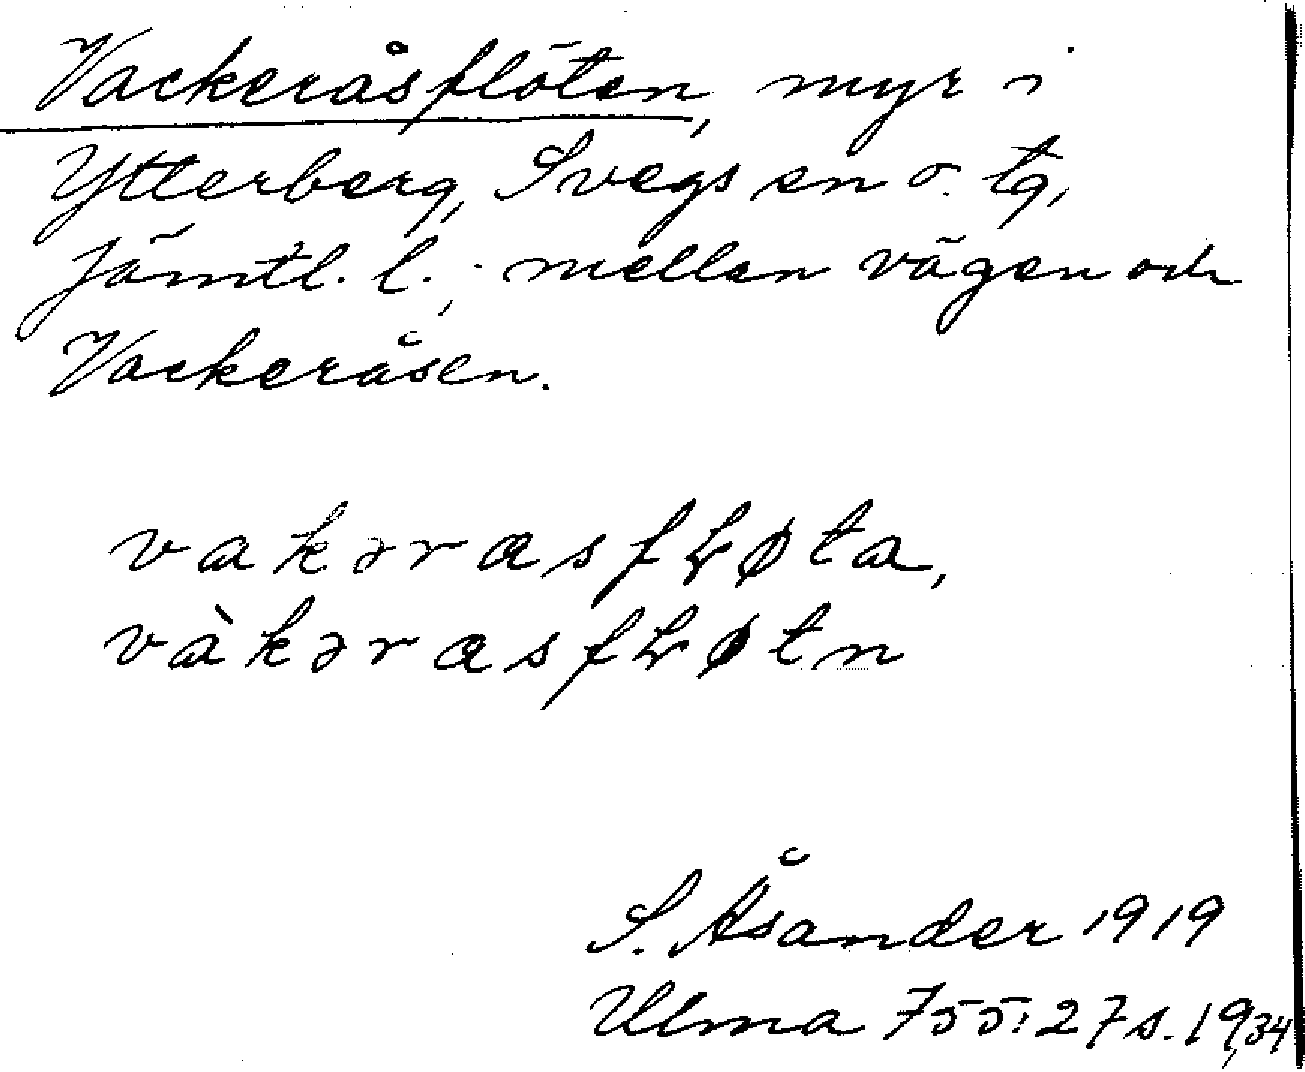 Vackeråsflöten, myr i
Ytterberg, Svegs sn o. tg,
Jämtl. l.; mellan vägen och
Vackeråsen.
vakərasfɫøta,
vàkərasfɫøtn
S. Åsander 1919
Ulma 755:27 s. 19, 34